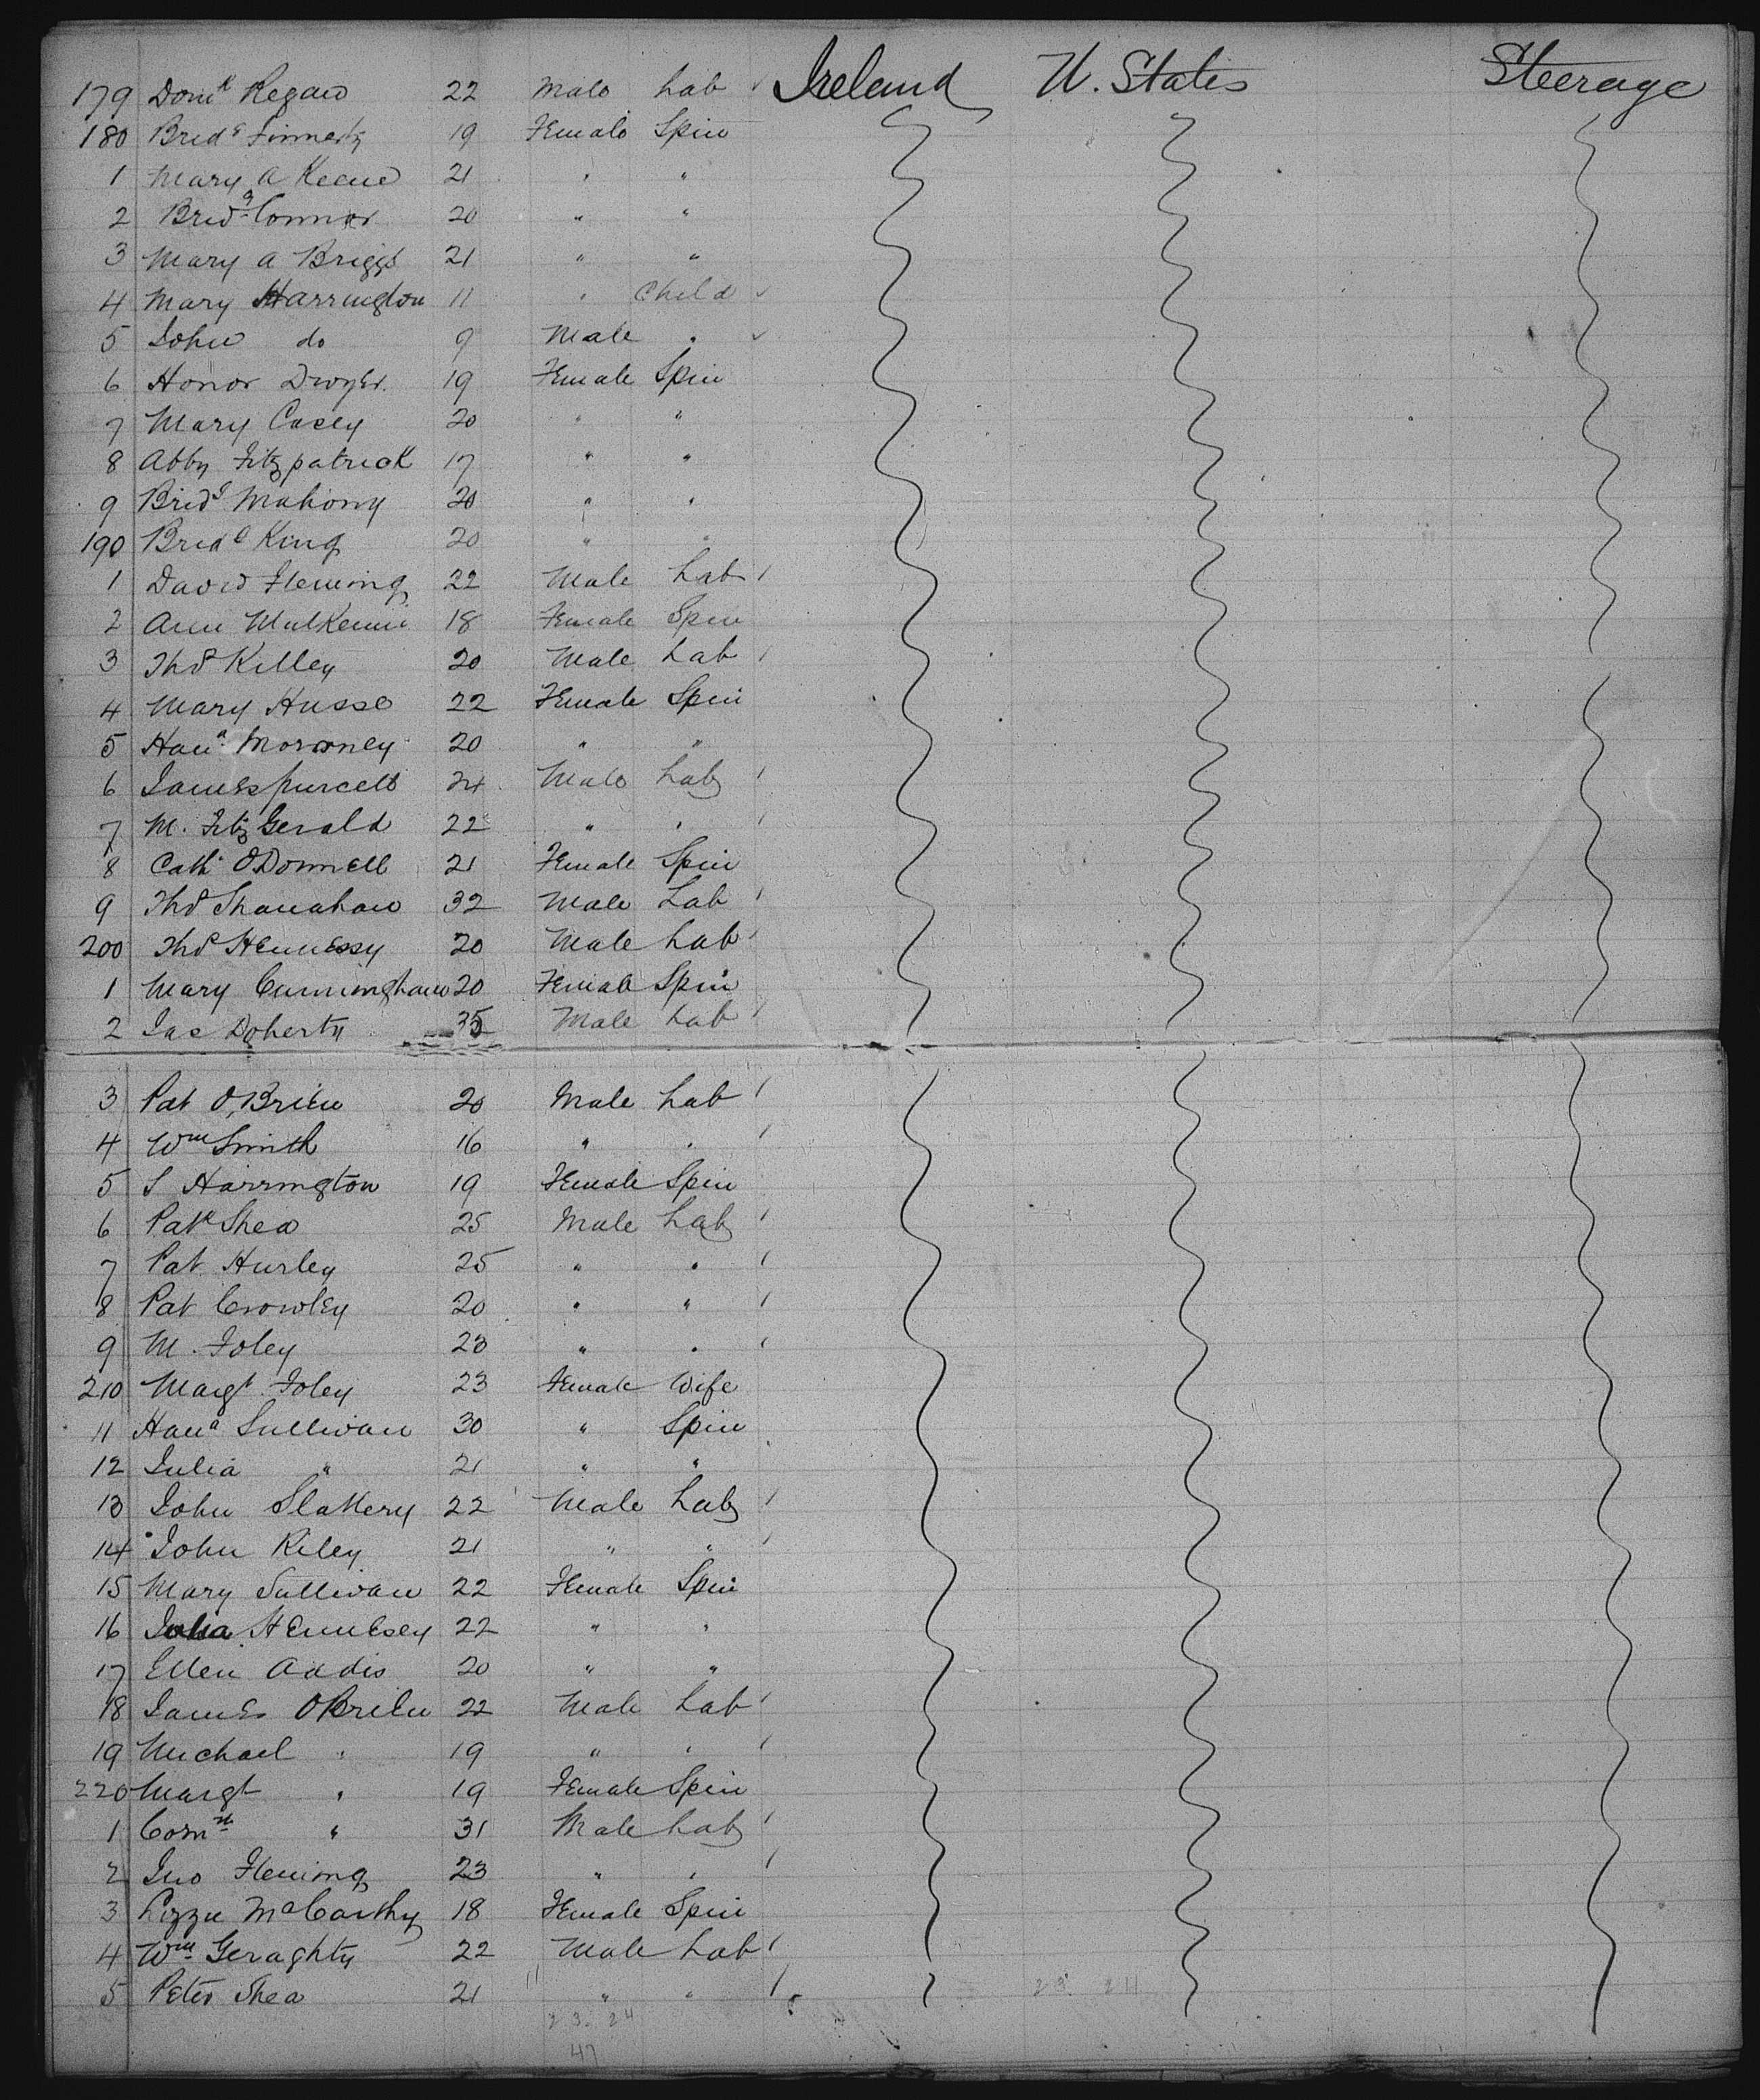 179 Domk Regan 22 Male Lab ✓ Ireland U. States Steerage
180 Bridt Finnerty 19 Female Spin
1 Mary A Keene 21 " "
2 Bridt Connor 20 " "
3 Mary A Briggs 21 " "
4 Mary Harrington 11 " Child ✓
5 John do 9 Male " ✓
6 Honor Dwyer 19 Female Spin
7 Mary Casey 20 " "
8 Abby Fitzpatrick 17 " "
9 Bridt Mahony 20 " "
190 Bridt King 20 " "
1 David Fleming 22 Male Lab
2 Ann Mulkerin 18 Female Spin
3 Thos Killey 20 Male Lab
4 Mary Husse 22 Female Spin
5 Hana Moroney 20 " "
6 James Purcell 24 Male Lab
7 M. FitzGerald 22 " "
8 Cath O'Donnell 21 Female Spin
9 Thos Shanahan 32 Male Lab
200 Thos Hennessy 20 Male Lab
1 Mary Cunningham 20 Female Spin
2 Jas Doherty 35 Male Lab
3 Pat O'Brien 20 Male Lab
4 Wm Smith 16 " "
5 S Harrington 19 Female Spin
6 Patk Shea 25 Male Lab
7 Pat Hurley 25 " "
8 Pat Crowley 20 " "
9 M. Foley 23 " "
210 Margt Foley 23 Female Wife
11 Hana Sullivan 30 " Spin
12 Julia " 21 " "
13 John Slattery 22 Male Lab
14 John Riley 21 " "
15 Mary Sullivan 22 Female Spin
16 Julia Hennesey 22 " "
17 Ellen Addis 20 " "
18 James OBrien 22 Male Lab
19 Michael " 19 " "
220 Margt " 19 Female Spin
1 Corns " 31 Male Lab
2 Jno Fleming 23 " "
3 Lizzie McCarthy 18 Female Spin
4 Wm Geraghty 22 Male Lab
5 Peter Shea 21 " "
23 24
47